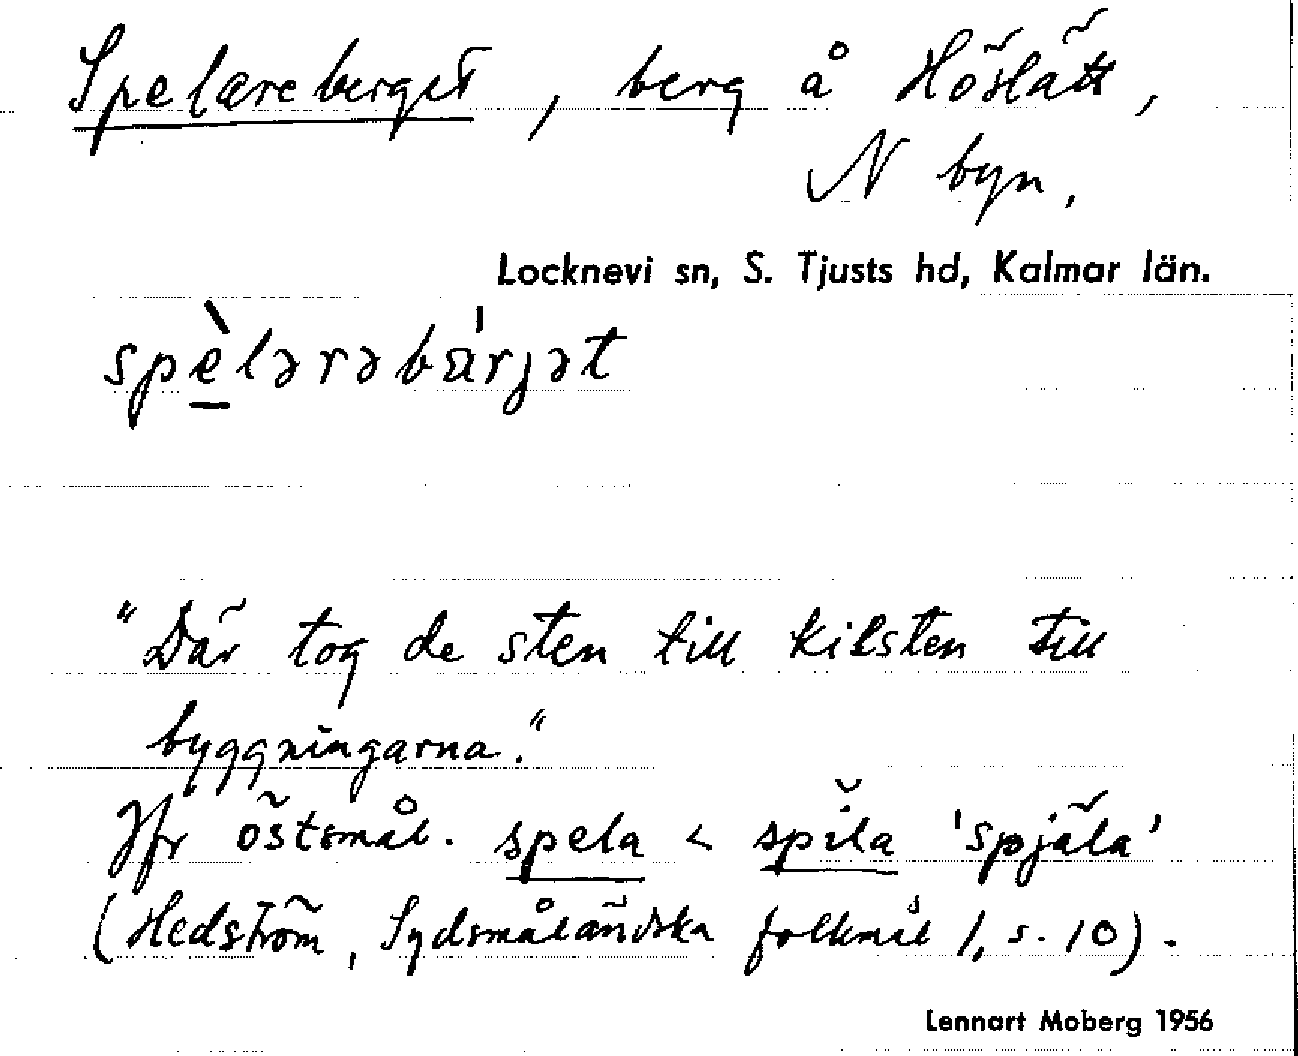 Spelareberget, berg å Höslätt,
N byn.
Locknevi sn, S. Tjusts hd, Kalmar län.
spèlərəbá̈rjət
"Där tog de sten till kilsten till
byggningarna."
Jfr östsmål. spela < spĭla 'spjäla'
(Hedström, Sydsmåländska folkmål 1, s. 10).
Lennart Moberg 1956